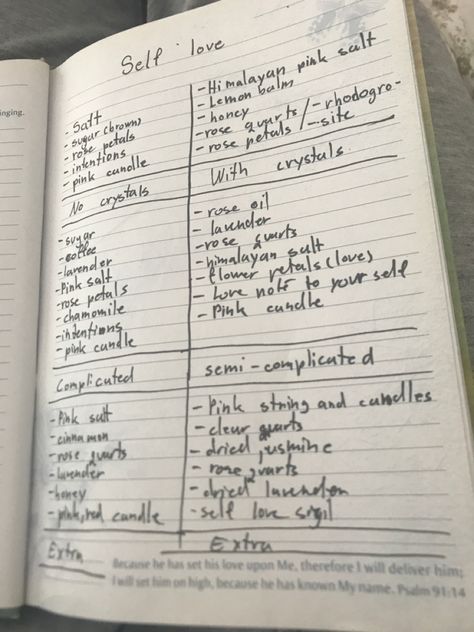 inging.
Self love
- Salt
- sugar (brown)
- rose petals
- intentions
- pink candle
No crystals
- Himalayan pink salt
- Lemon balm
- honey
- rose quarts / - rhodogro-
- rose petals / - site
With crystals
- sugar
- coffee
- lavender
- Pink salt
- rose petals
- chamomile
- intentions
- pink candle
Complicated
- rose oil
- lavender
- rose quarts
- himalayan salt
- flower petals (love)
- Love note to your self
- Pink candle
semi-complicated
- Pink salt
- cinnamon
- rose quarts
- lavender
- honey
- pink, red candle
Extra
- Pink string and candles
- clear quarts
- dried jusmine
- rose quarts
- dried lavender
- self love sigil
Extra
Because he has set his love upon Me, therefore I will deliver him;
I will set him on high, because he has known My name. Psalm 91:14